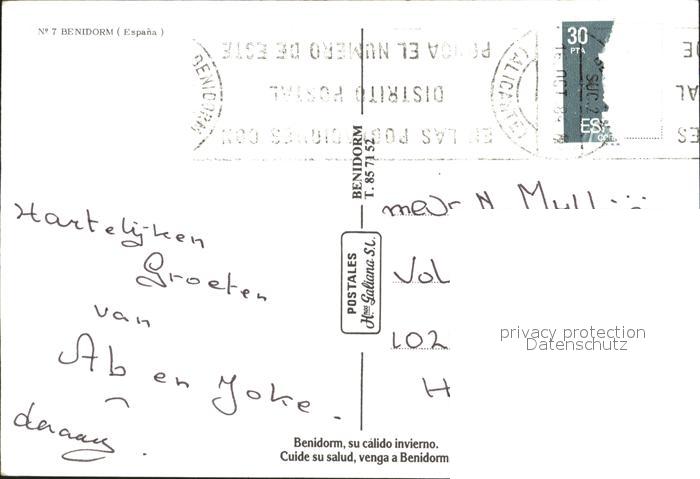 Nº 7 BENIDORM ( España )
PONGA EL NUMERO DE ESTE
DISTRITO POSTAL
EN LAS POSTALES CON
BENIDORM
(ALICANTE)
SUC. 2
30
PTA
ES
Hartelijken
Groeten
van
Ab en Joke.
BENIDORM
T. 85 71 52
POSTALES
Hnos Galiana S.L.
N Mull
Vol
102
H
privacy protection
Datenschutz
Benidorm, su cálido invierno.
Cuide su salud, venga a Benidorm